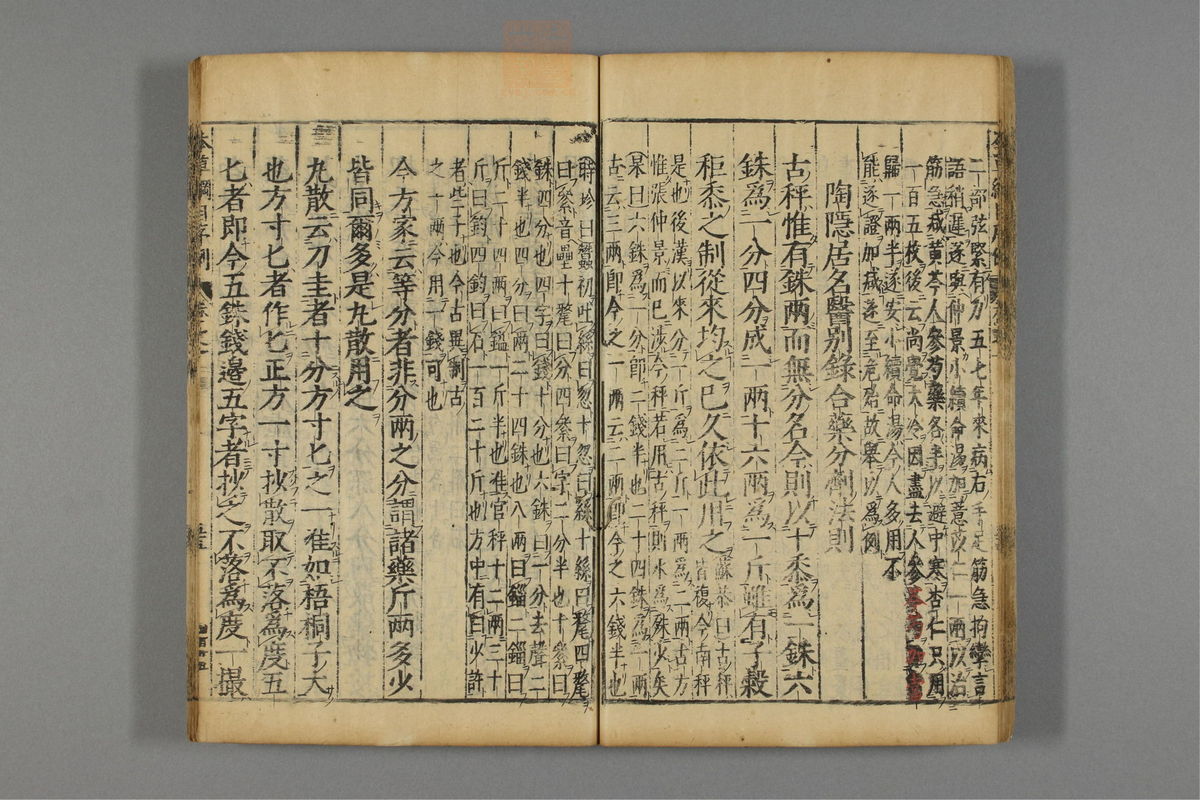 二部弦緊有力五七年來病右手足筋急拘攣言
語稍遲遂與仲景小續命湯加薏苡仁一兩以治
筋急減黃芩人參芍藥各半以避中寒杏仁只用
一百五枚後云尚覺大冷因盡去人參
歸一兩半遂安小續命湯今人多用不
能逐證加減遂至危殆故舉以為例
陶隱居名醫別錄合藥分劑法則
古秤惟有銖兩而無分名今則以十黍為一銖六
銖為一分四分成一兩十六兩為一斤雖有子穀
秬黍之制從來均之已久依此用之蘇恭曰古秤
皆複今南秤
是也後漢以來分一斤為二斤一兩為二兩古方
惟張仲景而已涉今秤若用古秤則水為殊少矣
杲曰六銖為一分即二錢半也二十四銖為一兩
古云三兩即今之一兩云二兩即今之六錢半也
時珍曰蠶初吐絲曰忽十忽曰絲十絲曰氂四氂
曰絫音壘十氂曰分四絫曰字二分半也十絫曰
銖四分也四字曰錢十分也六銖曰一分去聲二
錢半也四分曰兩二十四銖也八兩曰錙二錙曰
斤二十四兩曰鎰一斤半也准官秤十二兩三十
斤曰鈞四鈞曰石一百二十斤也方中有曰少許
者些子也今古異制古
之一兩今用一錢可也
今方家云等分者非分兩之分謂諸藥斤兩多少
皆同爾多是丸散用之
丸散云刀圭者十分方寸匕之一准如梧桐子大
也方寸匕者作匕正方一寸抄散取不落為度五
匕者即今五銖錢邊五字者抄之不落為度一撮